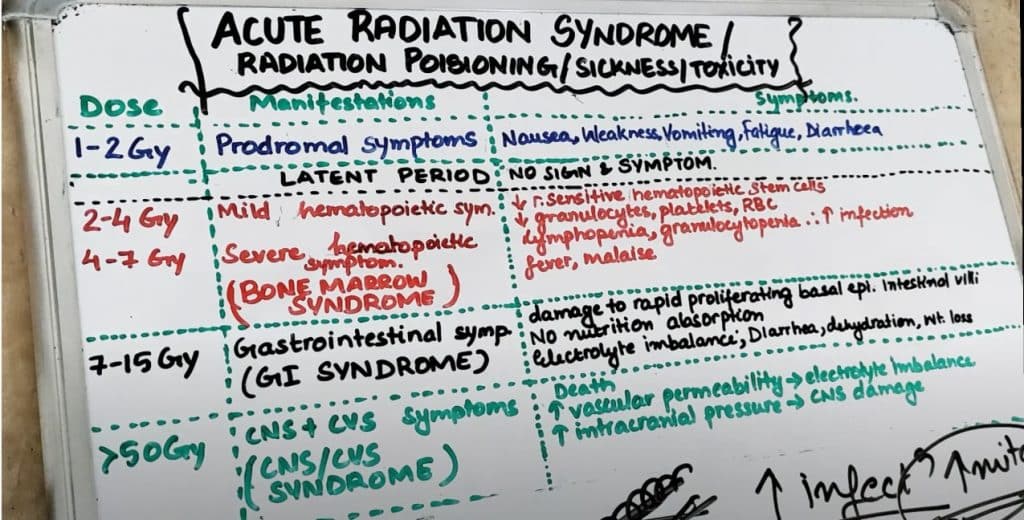 ACUTE RADIATION SYNDROME/
RADIATION POISIONING/SICKNESS/TOXICITY
Dose Manifestations Symptoms.
1-2 Gy Prodromal symptoms Nausea, Weakness, Vomiting, Fatigue, Diarrhoea
LATENT PERIOD NO SIGN & SYMPTOM.
2-4 Gy Mild hematopoietic sym. ↓ r. sensitive hematopoietic stem cells
↓ granulocytes, platelets, RBC
4-7 Gy Severe hematopoietic lymphopenia, granulocytopenia ∴ ↑ infection
symptom. fever, malaise
(BONE MARROW
SYNDROME)
7-15 Gy Gastrointestinal symp. damage to rapid proliferating basal epi. Intestinal villi
No nutrition absorption
(GI SYNDROME) Electrolyte imbalance, Diarrhea, dehydration, wt. loss
Death
>50 Gy CNS + CVS symptoms ↑ vascular permeability → electrolyte imbalance
(CNS/CVS ↑ intracranial pressure → CNS damage
SYNDROME)
↑ infect ↑